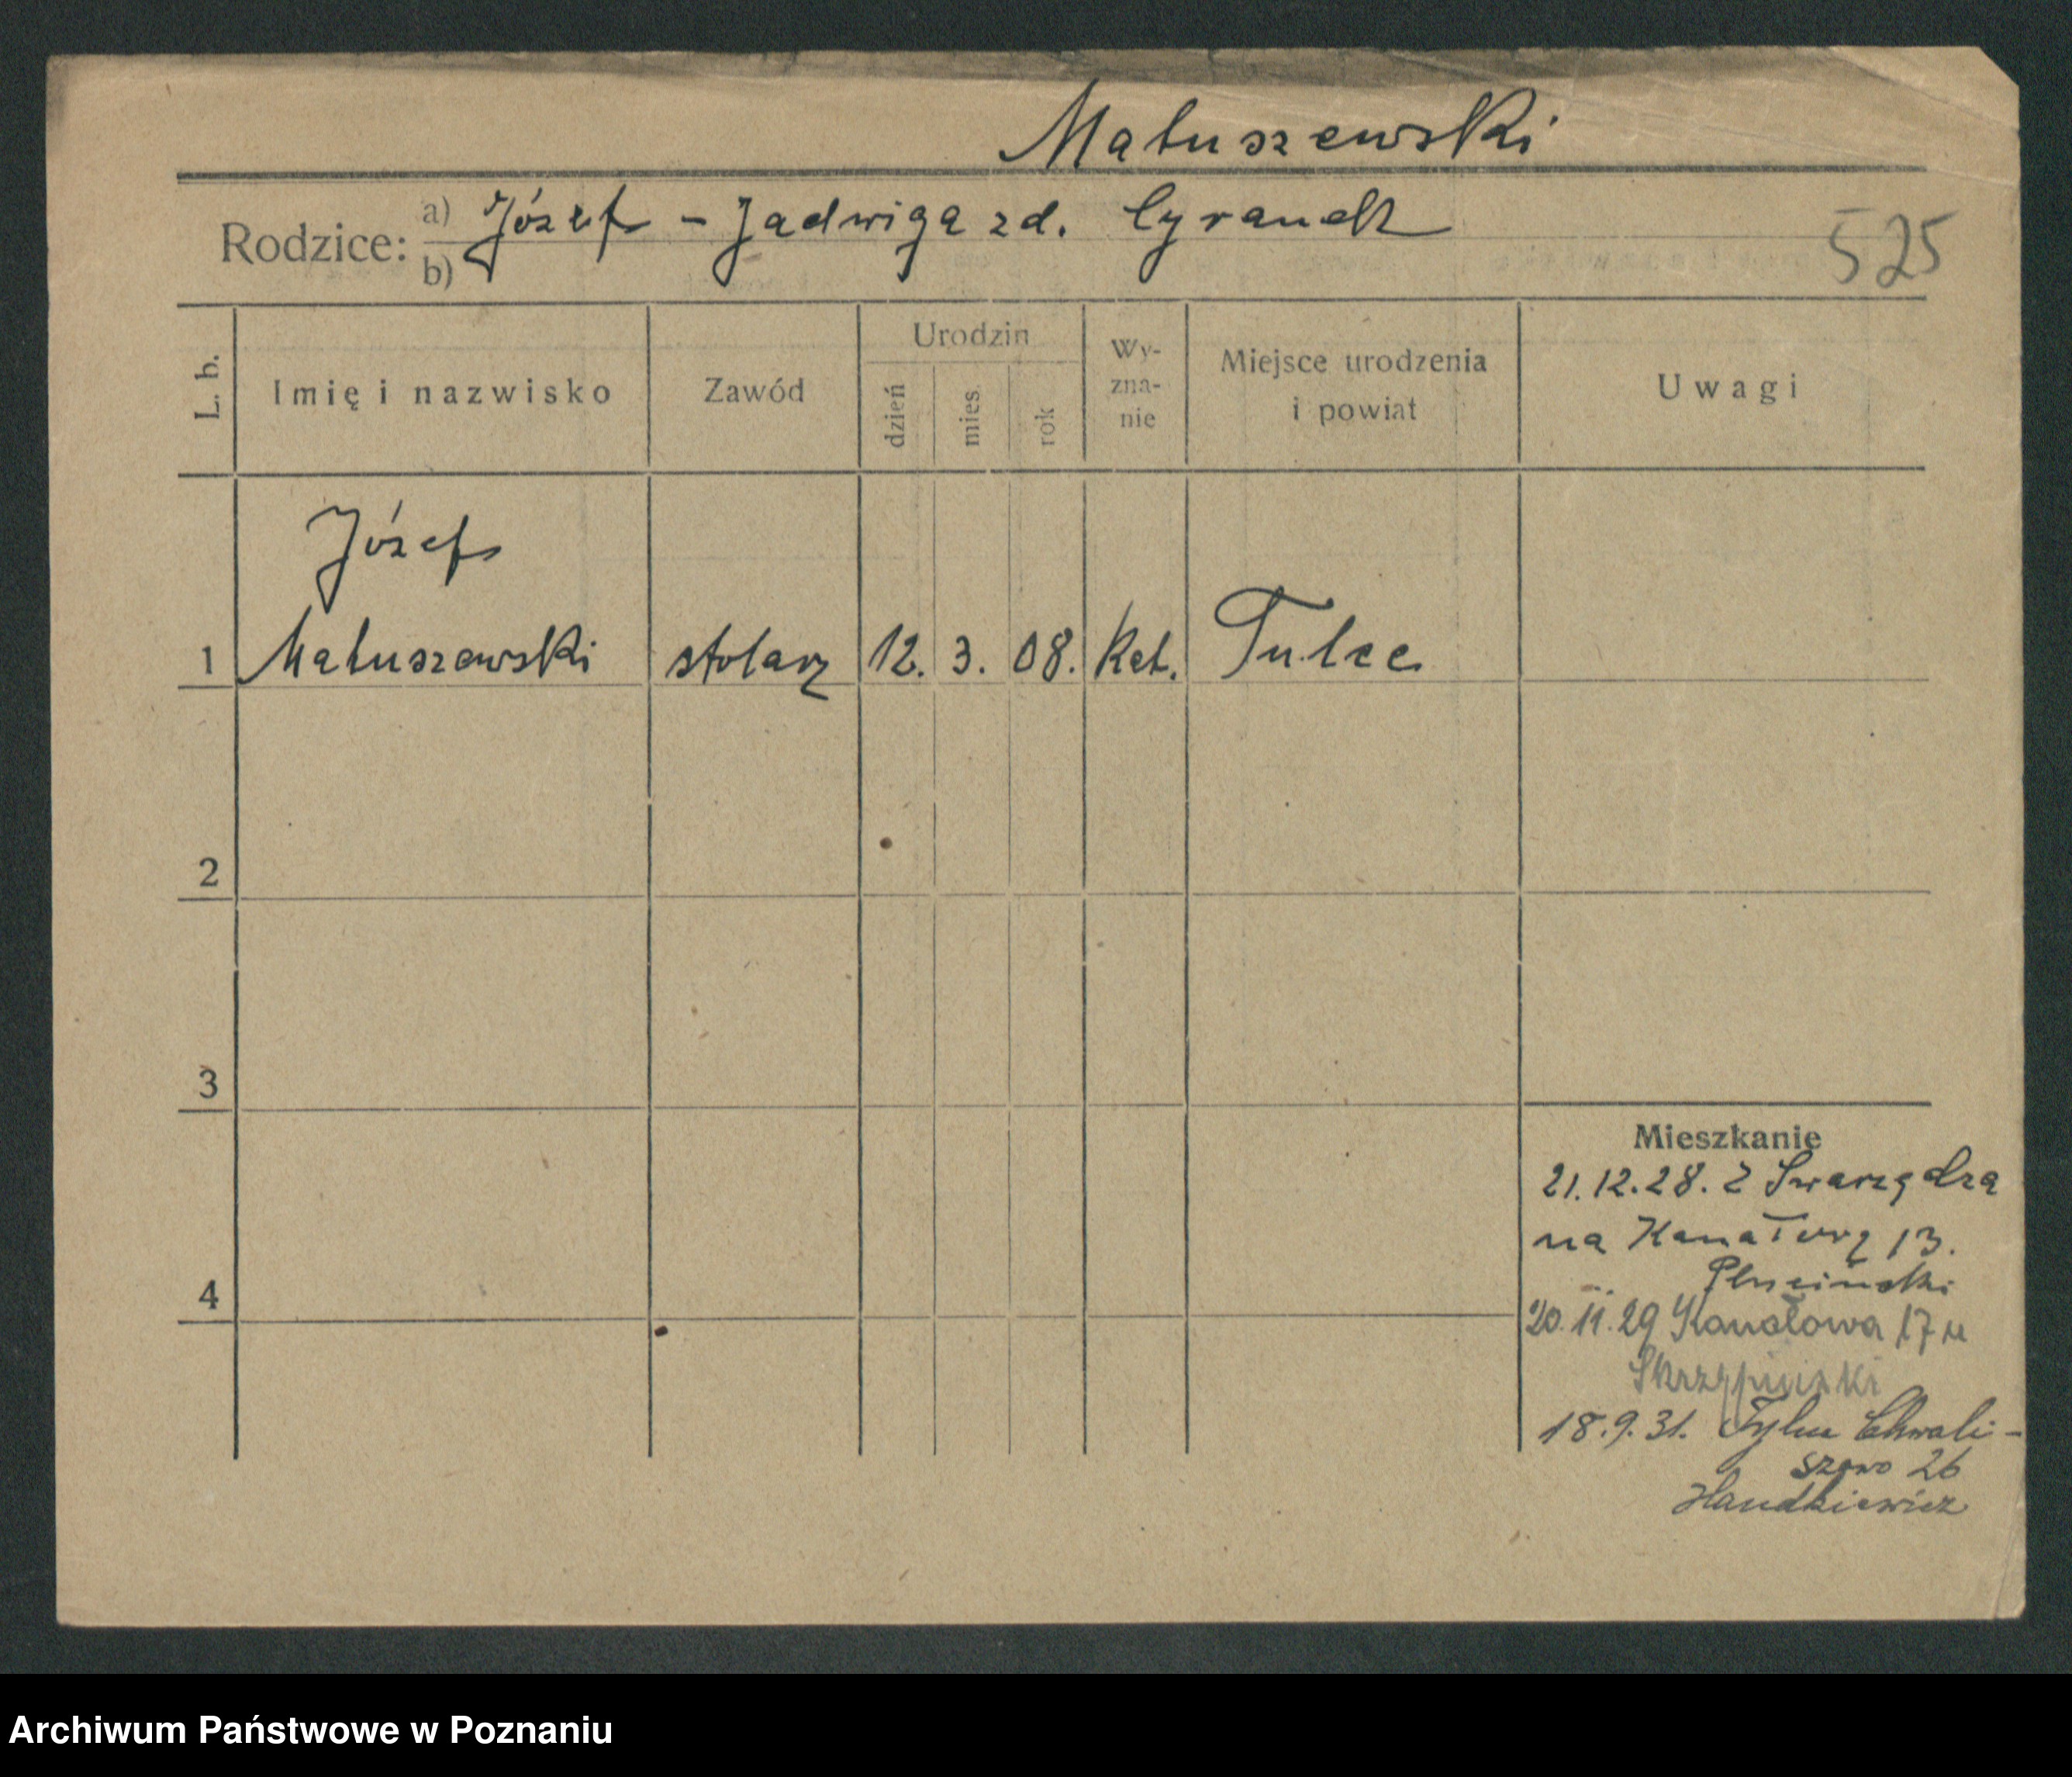 Matuszewski
Rodzice: a) Józef – Jadwiga zd. Cyranek
b)
525
L. b.
Imię i nazwisko
Zawód
Urodzin
dzień
mies.
rok
Wy-
zna-
nie
Miejsce urodzenia
i powiat
Uwagi
Józef
1 Matuszewski stolarz 12. 3. 08. Kat. Tulce
2
3
4
Mieszkanie
21.12.28. z Swarzędza
na Kanałową 13.
Pluciński
20.11.29 Kanałowa 17 u
18.9.31. Tylne Chwali-
szewo 26
Handkiewicz
Archiwum Państwowe w Poznaniu